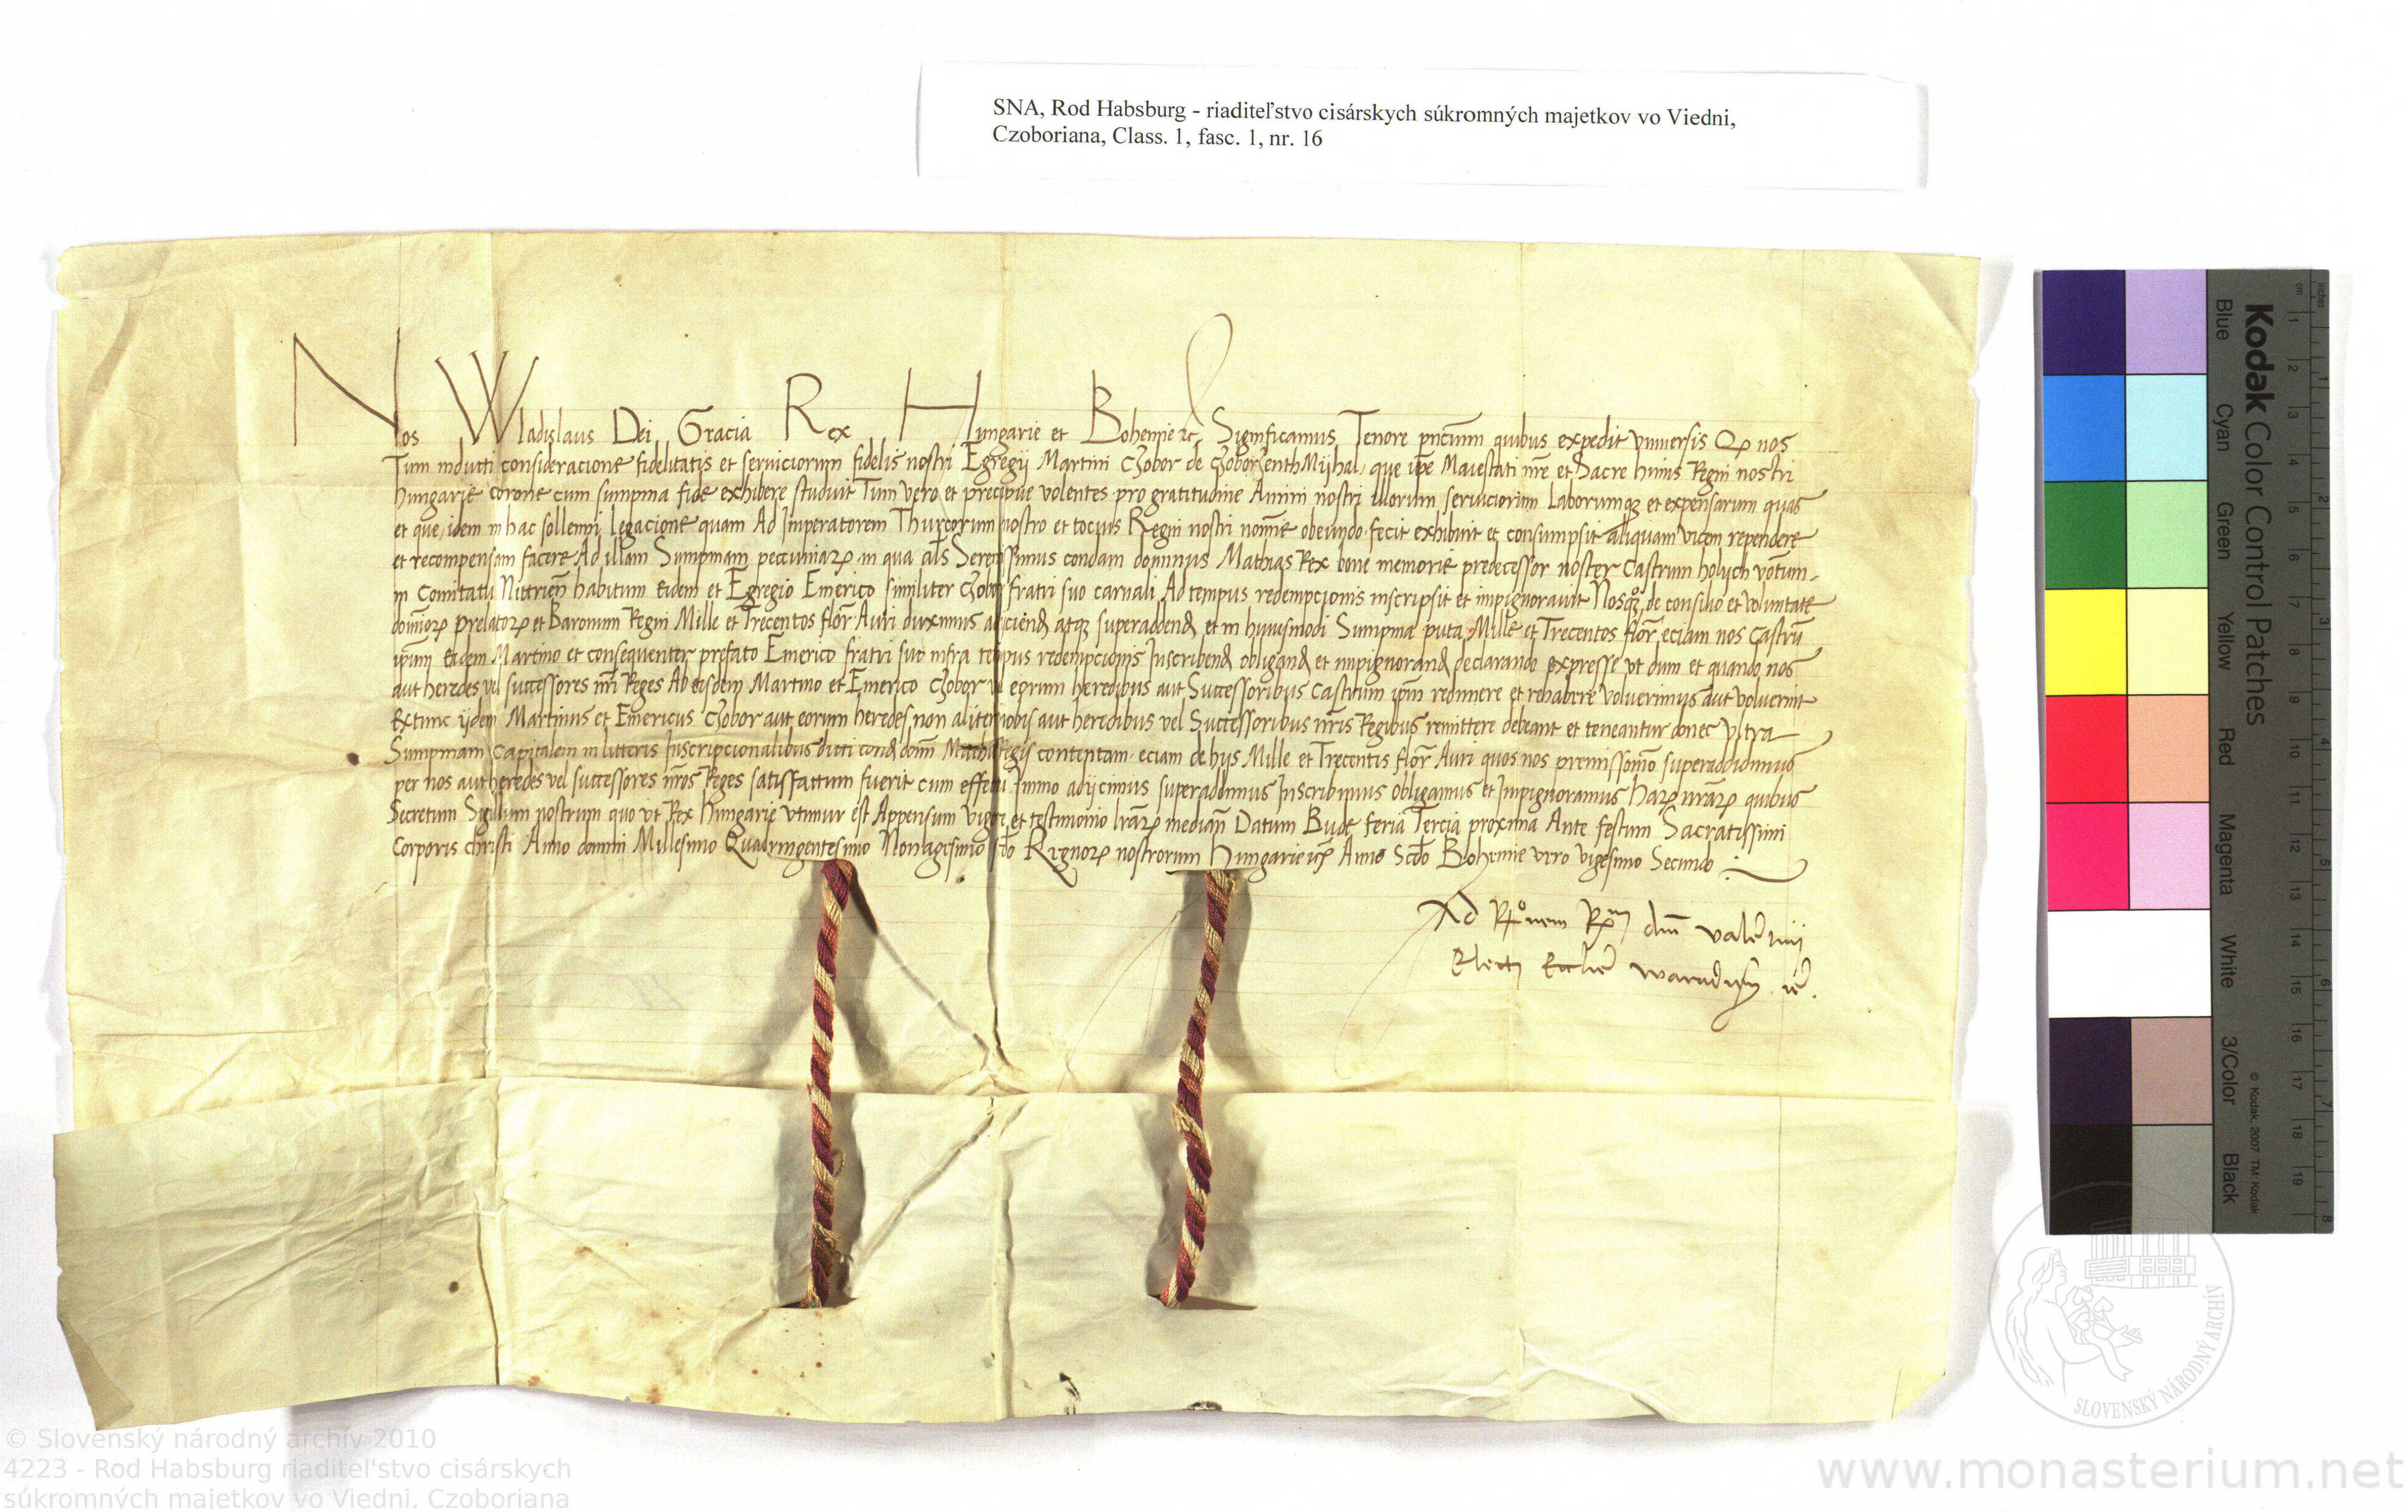 SNA, Rod Habsburg - riaditeľstvo cisárskych súkromných majetkov vo Viedni,
Czoboriana, Class. 1, fasc. 1, nr. 16
Nos Wladislaus Dei Gracia Rex Hungarie et Bohemie etc Significamus Tenore pncium quibus expedit vniuersis Qz nos
Tum inducti consideracione fidelitatis et seruiciorum fidelis nostri Egregij Martini Czobor de CzoborzenthMijhal, que ipse Maiestati nre et Sacre huius Regni nostri
hungarie corone cum summa fide exhibere studuit Tum vero et precipue volentes pro gratitudine Animi nostri illorum seruiciorum Laborumqz et expensarum quas
et que, idem in hac sollenni legacione quam Ad Imperatorem Thurcorum nostro et tocius Regni nostri nomine obeundo fecit exhibuit et consumpsit aliquam vicem rependere
et recompensam facere Ad illam Summam pecuniarz in qua als Serenissimus condam dominus Mathias Rex bone memorie predecessor noster Castrum holych votum
in Comitatu Nittrien habitum Eidem et Egregio Emerico similiter Czobor fratri suo carnali Ad tempus redempcionis inscripsit et impignorauit Nosqz de consilio et voluntate
dominorz prelatorz et Baronum Regni Mille et Trecentos flor Auri duximus adiciend atqz superaddend et in huiusmodi Summa puta Mille et Trecentos flor eciam nos Castru
ipsum Eidem Martino et consequenter prefato Emerico fratri suo infra tempus redempcionis Inscribend obligand et impignorand declarando expresse vt dum et quando nos
aut heredes vel successores nri Reges Ab eisdem Martino et Emerico Czobor vel eorum heredibus aut Successoribus Castrum ipm redimere et rehabere voluerimus aut voluerint
Extunc ijdem Martinus et Emericus Czobor aut eorum heredes non aliter nobis aut heredibus vel Successoribus nris Regibus remittere debeant et teneantur donec vltra
Summam Capitalem in litteris Inscripcionalibus dicti cond domi Mathie Regis contentam eciam de hys Mille et Trecentis flor Auri quos nos premissomo superaddidimus
per nos aut heredes vel successores nros Reges satisfactum fuerit cum effectu Immo adijcimus superaddimus Inscribimus obligamus et Impignoramus harz nrarz quibus
Secretum Sigillum nostrum quo vt Rex hungarie vtimur est Appensum vigore et testimonio lrarz mediante Datum Bude feria Tercia proxima Ante festum Sacratissimi
Corporis christi Anno domini Millesimo Quadringentesimo Nonagesimo scdo Regnorz nostrorum hungarie etc Anno Scdo Bohemie vero vigesimo Secundo
Ad Rtonem Rmi dni valentini
Electi Ecclie waradiens etc.
Kodak Color Control Patches
Blue Cyan Green Yellow Red Magenta White 3/Color Black
© Kodak, 2007 TM: Kodak
inches 1 2 3 4 5 6 7 8
cm 1 2 3 4 5 6 7 8 9 10 11 12 13 14 15 16 17 18 19
SLOVENSKÝ NÁRODNÝ ARCHÍV
© Slovenský národný archív 2010
4223 - Rod Habsburg riaditel'stvo cisárskych
súkromných majetkov vo Viedni, Czoboriana
www.monasterium.net